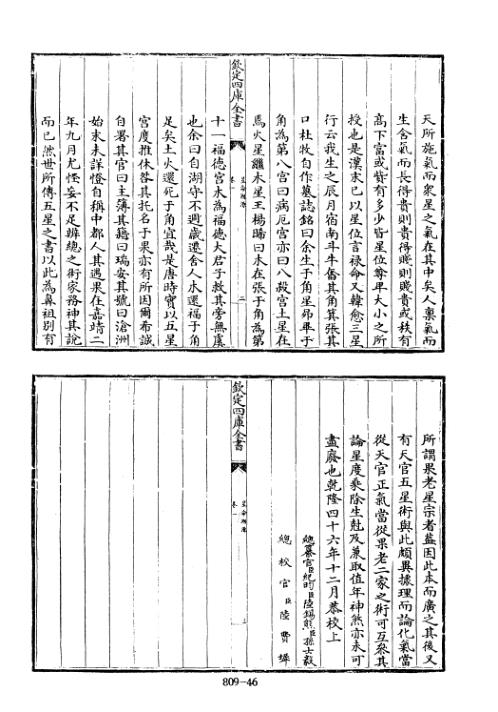 天所施氣而衆星之氣在其中矣人稟氣而
生含氣而長得貴則貴得賤則賤貴或秩有
高下富或貲有多少皆星位尊卑大小之所
授也是漢末已以星位言祿命又韓愈三星
行云我生之辰月宿南斗牛奮其角箕張其
口杜牧自作墓誌銘曰余生于角星昴畢于
角為第八宮曰病厄宮亦曰八殺宮土星在
焉火星繼木星工楊晞曰木在張于角為第
欽定四庫全書
卷一
二
十一福德宮木為福德大君子救其旁無虞
也余曰自湖守不週歲遷舍人木還福于角
足矣土火還死于角宜哉是唐時實以五星
宮度推休咎其托名于果亦有所因爾希誠
自署其官曰主簿其籍曰瑞安其號曰滄洲
始末未詳燈自稱中都人其遇果在嘉靖二
年九月尤怪妄不足辨總之術家務神其說
而已然世所傳五星之書以此為鼻祖别有
所謂果老星宗者葢因此本而廣之其後又
有天官五星術與此頗異據理而論化氣當
從天官正氣當從果老二家之術可互參其
論星度乘除生尅及兼取值年神煞亦未可
盡廢也乾隆四十六年十二月恭校上
總纂官臣紀昀臣陸錫熊臣孫士毅
總校官臣陸費墀
欽定四庫全書
卷一
809-46